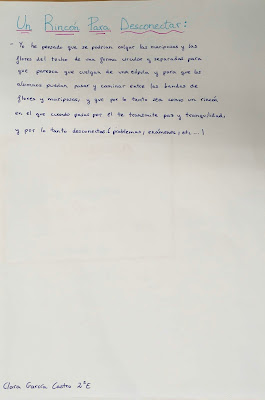 Un Rincón Para Desconectar:
- Yo he pensado que se podrían colgar las mariposas y las
flores del techo de una forma circular y separadas para
que parezca que cuelgan de una cúpula y para que los
alumnos puedan pasar y caminar entre las bandas de
flores y mariposas, y que por lo tanto sea como un rincón
en el que cuando pasas por él te transmite paz y tranquilidad,
y por lo tanto desconectas (problemas, exámenes, etc...)
Clara García Castro 2ºE